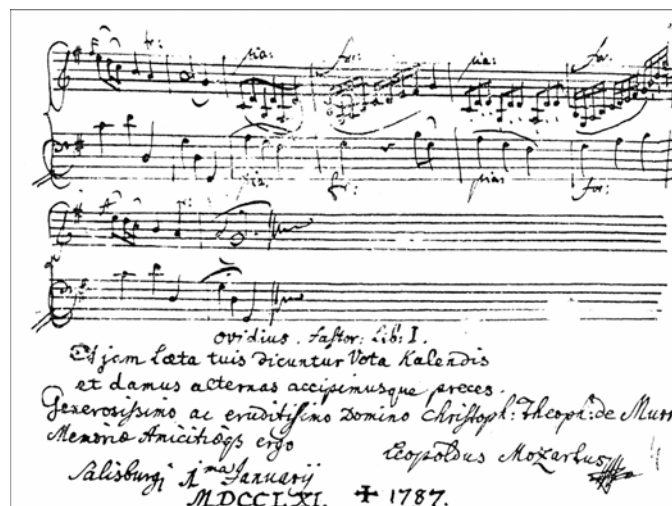 tr:
pia: for: pia: for:
pia: for: pia: for:
ovidius. fastor: Lib: I.
Et jam Læta tuis dicuntur Vota Kalendis
et damus alternas accipimusque preces.
Generosissimo ac eruditissimo Domino Christoph: Theoph: de Murr
Memoriæ Amicitiæqs ergo
Leopoldus Mozartus
Salisburgi 1ma Januarij
MDCCLXI. ✝ 1787.